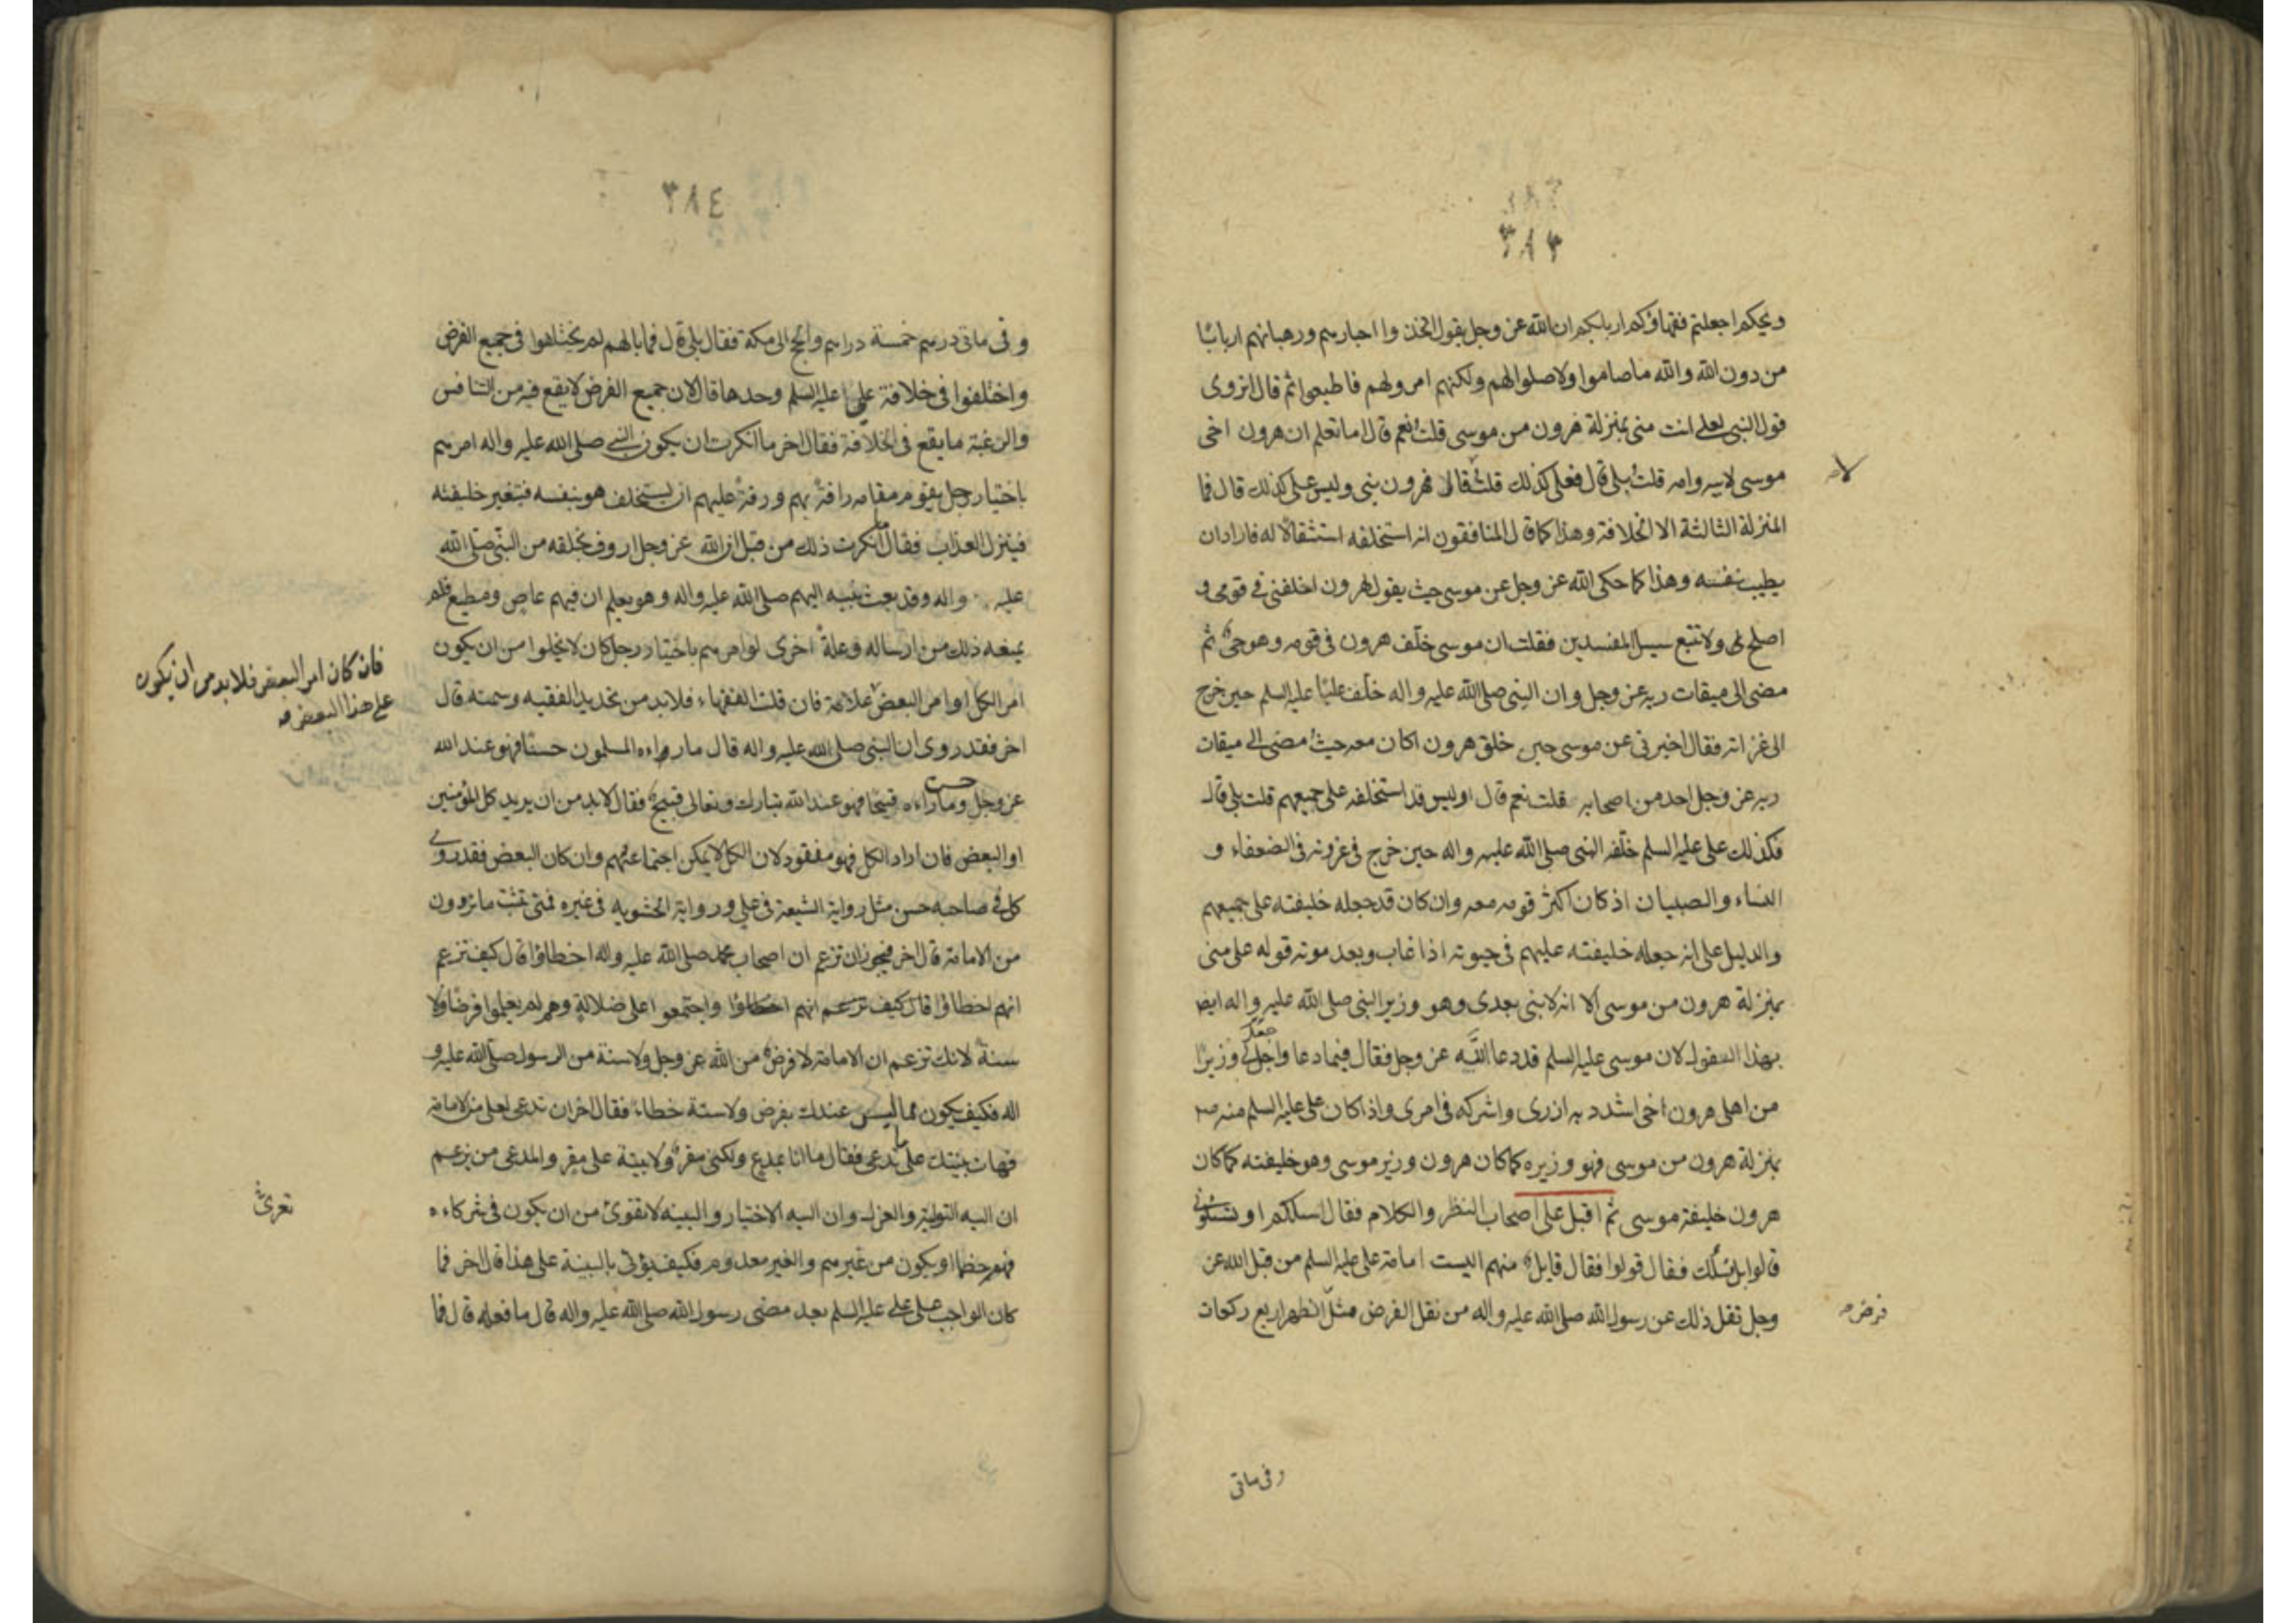 ٣٨٣
ويحكم اجعلتم فقهاؤكم اربابكم ان الله عز وجل يقول اتخذوا احبارهم ورهبانهم اربابًا
من دون الله والله ما صاموا ولا صلوا لهم ولكنهم امروا لهم فاطيعوا ثم قال اتروى
قول النبى لعلى انت منى بمنزلة هرون من موسى قلت نعم قال اما تعلم ان هرون اخى
موسى لابيه وامه قلت بلى قال فعلى كذلك قلت قال فهرون نبى وليس على كذلك قال فما
المنزلة الثالثة الا الخلافة وهذا كما قال المنافقون انه استخلفه استثقالا له فاراد ان
يطيب نفسه وهذا كما حكى الله عز وجل عن موسى حيث يقول لهرون اخلفنى فى قومى و
اصلح ولا تتبع سبيل المفسدين فقلت ان موسى خلّف هرون فى قومه وهو حىّ ثم
مضى الى ميقات ربه عز وجل وان النبى صلى الله عليه واله خلّف عليًا عليه السلم حين خرج
الى غزاته فقال اخبرنى عن موسى حين خلف هرون اكان معه حيث مضى الى ميقات
ربه عز وجل احد من اصحابه قلت نعم قال اوليس قد استخلفه على جميعهم قلت بلى قال
فكذلك على عليه السلم خلّفه النبى صلى الله عليه واله حين خرج فى غزوته فى الضعفاء و
النساء والصبيان اذ كان اكثر قومه معه وان كان قد جعله خليفته على جميعهم
والدليل على انه جعله خليفته عليهم فى حيوته اذا غاب وبعد موته قوله على منى
بمنزلة هرون من موسى الا انه لا نبى بعدى وهو وزير النبى صلى الله عليه واله ايضا
بهذا القول لان موسى عليه السلم قد دعا الله عز وجل فقال فيما دعا واجعل لى وزيرًا
من اهلى هرون اخى اشدد به ازرى واشركه فى امرى واذا كان على عليه السلم منه ص
بمنزلة هرون من موسى فهو وزيره كما كان هرون وزير موسى وهو خليفته كما كان
هرون خليفة موسى ثم اقبل على اصحاب النظر والكلام فقال اسلكم او تسئلونى
قالوا بل نسئلك فقال قولوا فقال قايل منهم اليست امامة على عليه السلم من قبل الله عن
وجل نقل ذلك عن رسول الله صلى الله عليه واله من نقل الفرض مثل الظهر اربع ركعات
فرض
وفى ماتى
٣٨٤
وفى ماتى درهم خمسة دراهم والحج الى مكة فقال بلى قال فما بالهم لم يختلفوا فى جميع الفرض
واختلفوا فى خلافة على عليه السلم وحدها قال لان جميع الفرض لا يقع فيه من التنافس
والرغبة ما يقع فى الخلافة فقال اخر ما انكرت ان يكون النبى صلى الله عليه واله امرهم
باختيار رجل يقوم مقامه رافة بهم ورقة عليهم ان يستخلف هو بنفسه فيتغير خليفته
فينزل العذاب فقال انكرت ذلك من قبل ان الله عز وجل اروف بخلقه من النبى صلى الله
عليه واله وقد بعث نبيه اليهم صلى الله عليه واله وهو يعلم ان فيهم عاص ومطيع فلم
يمنعه ذلك من ارساله وعلة اخرى لو امرهم باختيار رجل كان لا يخلوا من ان يكون
امر الكل او امر البعض علامة فان قلت الفقهاء فلا بد من تحديد الفقيه وسمته قال
اخر فقد روى ان النبى صلى الله عليه واله قال ما راءه المسلمون حسنًا فهو عند الله
حسن
عز وجل وما راءه قبيحًا فهو عند الله تبارك وتعالى قبيح فقال لا بد من ان يريد كل المؤمنين
او البعض فان اراد الكل فهو مفقود لان الكل لا يمكن اجتماعهم وان كان البعض فقد روى
كل فى صاحبه حسن مثل رواية الشيعة فى على ورواية الحشوية فى غيره فمتى تثبت ما تردون
من الامامة قال اخر فيجوز ان تزعم ان اصحاب محمد صلى الله عليه واله اخطاؤا قال كيف تزعم
انهم اخطاؤا قال كيف تزعم انهم اخطاؤا واجتمعوا على ضلالة وهم لم يعلموا فرضا ولا
سنة لانك تزعم ان الامامة لا فرض من الله عز وجل ولا سنة من الرسول صلى الله عليه و
اله فكيف يكون مما ليس عندك بفرض ولا سنة خطاء فقال اخر ان تدعى لعلى من الامامة
فهات بينتك على ما تدعى فقال ما انا بمدع ولكنى مقر ولا بينة على مقر والمدعى من يزعم
ان اليه التولية والعزل وان اليه الاختيار والبينة لا تقوى من ان يكون فى شركاءه
فهم خصما او يكون من غيرهم والغير معدوم فكيف يؤتى بالبينة على هذا قال اخر فما
كان الواجب على على عليه السلم بعد مضى رسول الله صلى الله عليه واله قال ما فعله قال فما
فان كان امر البعض فلا بد من ان يكون
على هذا البعض
تعرى